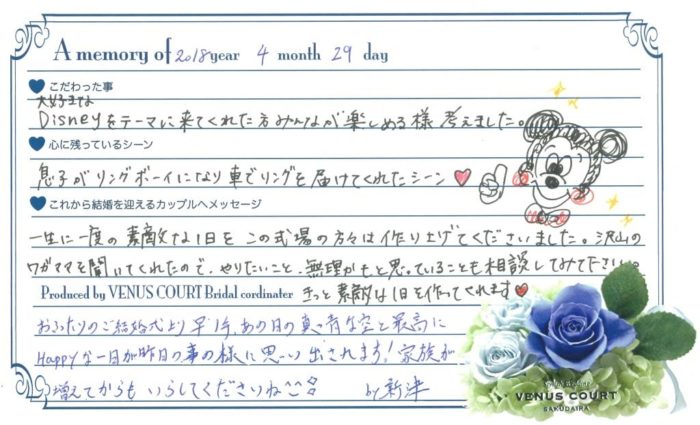 A memory of 2018 year 4 month 29 day
こだわった事
大好きな
Disneyをテーマに来てくれた方みんなが楽しめる様考えました。
心に残っているシーン
息子がリングボーイになり車でリングを届けてくれたシーン
これから結婚を迎えるカップルへメッセージ
一生に一度の素敵な1日をこの式場の方々は作り上げてくださいました。沢山の
ワガママを聞いてくれたので、やりたいこと、無理かもと思っていることも相談してみてください。
Produced by VENUS COURT Bridal cordinater きっと素敵な1日を作ってくれます
おふたりのご結婚式より早1年、あの日の真っ青な空と最高に
Happyな一日が昨日の事の様に思い出されます!家族が
増えてからもいらしてくださいね^^
by 新津
VENUS COURT
SAKUDAIRA